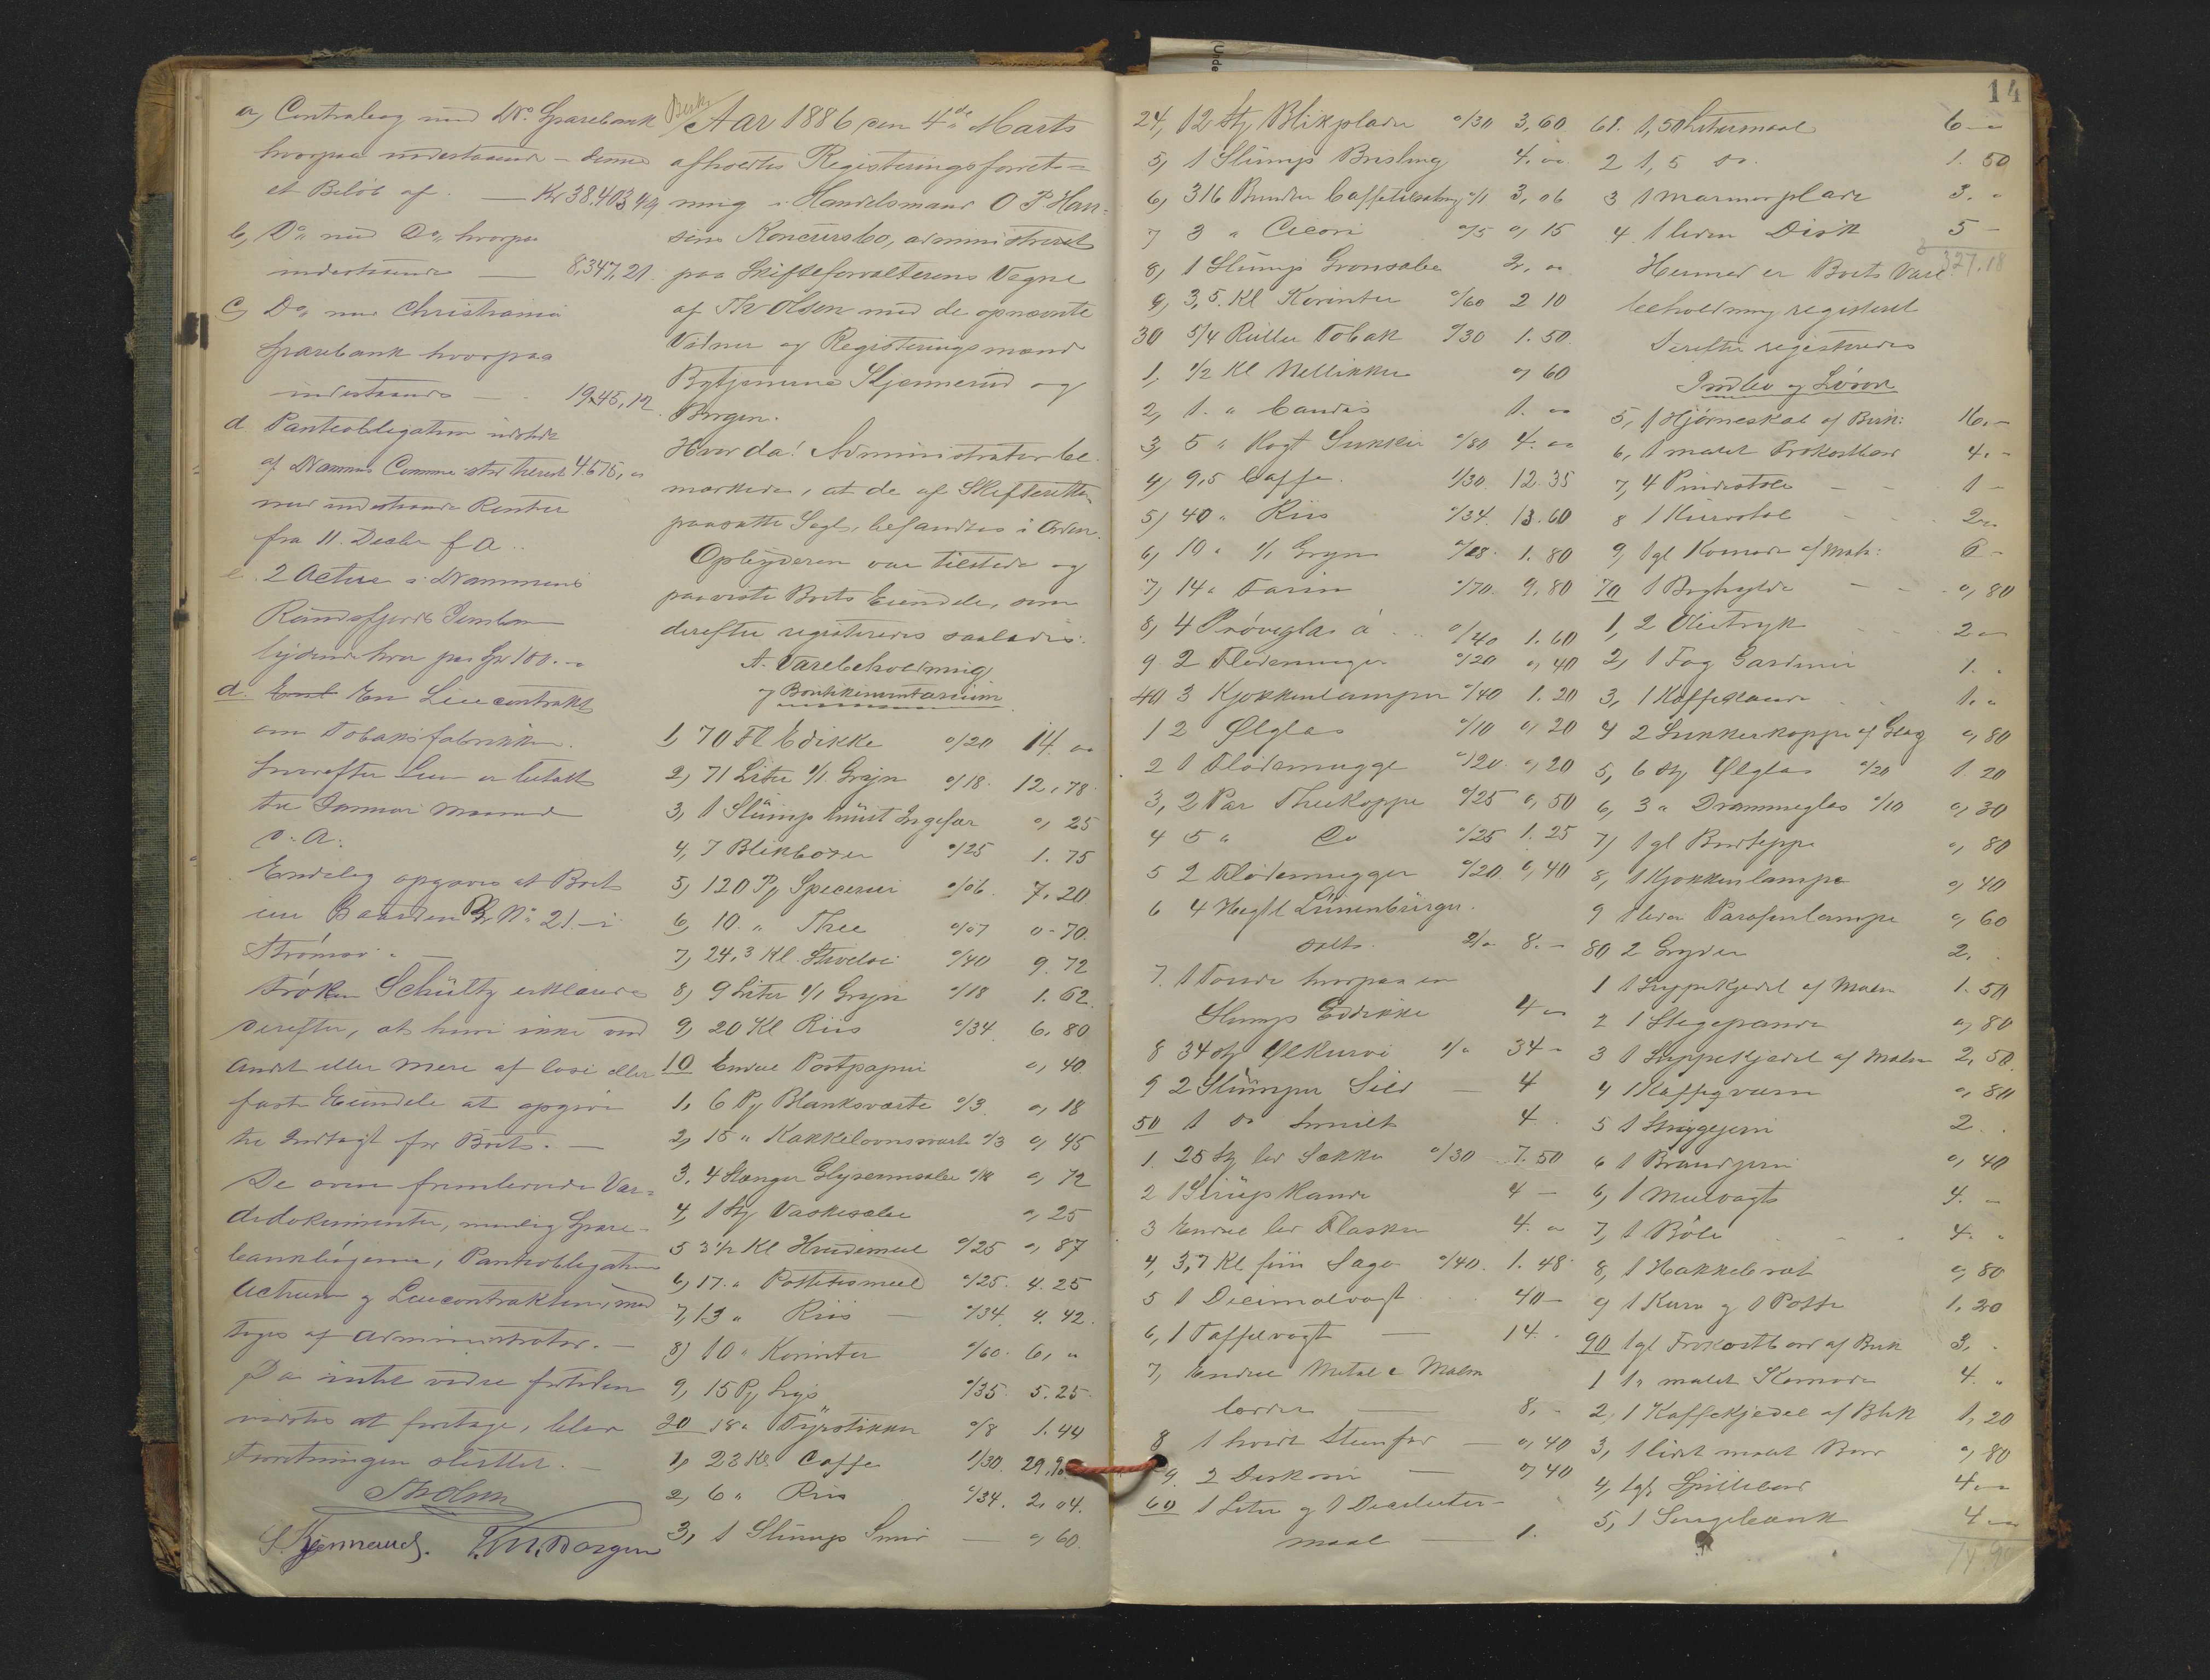 a, Contrabog med Dr. Sparebank
hvorpaa indestaaende – denne
et Beløb af. — Kr 38,403,49
b, Do med Do, hvorpaa
indestaaende — 8,347,21.
c, Do med Christiania
Sparebank hvorpaa
indestaaende — 1945,12.
d Panteobligation udstedt
af Drammens Commune stor til rest 4.675,"
med indestaaende Renter
fra 11. Decbr f. A.
e. 2 Actier i Drammens
Randsfjords Jernbane
lydende hver paa Spd 100.–
d. En Leiecontrakt
om Tobaksfabrikken.
hvorefter Leien er betalt
til Januar Maaned
d. A.
Endelig opgaves at Boet
eier Gaarden Gr No 21 – i
Strømsø.
Frøken Schultz erklærede
derefter, at hun ikke ved
andet eller mere af løse eller
faste Eiendele at opgive
til Indtægt for Boet. —
De oven fremlevede Vær=
didokumenter, nemlig Spare-
bankbøgerne, Panteobligation
Actierne og Leiecontrakten, mod
toges af Administrator. —
Da intet videre fortiden
vidstes at foretage, blev
Forretningen sluttet. —
Th Olsen
S. Skjennerud. P. M. Borgen
Besk.
Aar 1886 den 4de Marts
afholdtes Registeringsforret=
ning i Handelsmand O P Han-
sens Koncursbo, administreret
paa Skifteforvalterens Vegne
af Th Olsen med de opnævnte
Vidner og Registeringsmænd
Bytjenerne Skjennerud og
Borgen.
Hvor da! Administrator be-
mærkede, at de af Skifteretten
paasatte Segl, befandtes i Orden.
Opbyderen var tilstede og
paaviste Boets Eiendele, som
derefter registreredes saaledes:
A. Varebeholdning
og Boutikinventarium
1, 70 Fl Edikke o/20 14. "
2, 71 Liter 1/1 Gryn o/18. 12,78.
3, 1 Slump knust Ingefær o, 25
4, 7 Blikboxer o/25 1. 75
5, 120 Pk Speceri o/06. 7. 20
6, 10. " Thee o/07 o - 70.
7, 24,3 Kl. Stivelse o/40 9. 72
8, 9 Liter 1/1 Gryn o/18 1. 62.
9, 20 Kl Riis o/34. 6. 80
10 Endeel Postpapir o, 40.
1, 6 Pk Blanksværte o/3. o, 18
2, 15 " Kakkelovnssværte o/3 o, 45
3. 4 Stænger Glyserinsæbe o/18 o, 72
4, 1 Stk Vaskesæbe o, 25
5 3 1/2 Kl Hvedemeel o/25 o, 87
6, 17. " Potetesmeel o/25. 4. 25
7, 13 " Riis — o/34. 4. 42.
8, 10 " Korinter o/60. 6, "
9, 15 Pk Lys o/35. 5. 25.
20 18 " Fyrstikker o/8 1. 44
1, 23 Kl Caffe 1/30. 29,90
2, 6 " Riis o/34. 2. 04.
3, 1 Slump Smør — o, 60.
14
24, 12 Stk Blikplader o/30 3,60
5, 1 Slump Brisling 4. "
6, 316 Bundter Caffetilsætning o/1 3,06
7 3 " Cicori o/5 o, 15
8, 1 Slump Grønsæbe 2, "
9, 3,5. Kl Korinter o/60 2 10
30 5/4 Ruller Tobak o/30 1. 50.
1, 1/2 Kl Nellikker o, 60
2, 1. " Candis 1. "
3, 5 " Hagt Sukker o/80 4. "
4, 9,5 Caffe. 1/30. 12. 35
5, 40 " Riis o/34. 13. 60
6, 10 " 1/1 Gryn o/18. 1. 80
7, 14 " Farin o/70. 9. 80
8, 4 Prøveglas á .. o/40 1. 60
9 2 Flødemugger o/20 o, 40
40 3 Kjøkkenlamper o/40 1. 20
1 2 Ølglas o/10 o, 20
2 1 Flødemugge o/20. o, 20
3, 2 Par Theekopper o/25 o, 50
4 5 " Do o/25 1. 25
5 2 Flødemugger o/20 o, 40
6 4 Hegtl Lünenburger.
salt. 2/" 8. –
7. 1 Tønde hvorpaa en
Slump Eddikke 4 "
8 34 Stk Ølkurve 1/" 34 –
9 2 Slumper Sild — 4
50 1 do 4.
1. 25 Stk led Sække o/30 7. 50
2 1 Sirupskande 4 –
3 Endeel led Flasker 4. "
4, 3,7 Kl fiin Sago o/40. 1. 48.
5 1 Decimalvægt 40 –
6, 1 Taffelvægt — 14.
7, Endeel Metal & Malm
lodder — 8, –
8 1 hvidt Steenfad — o, 40
9. 2 — o, 40
60 1 Liter og 1 Deciliter-
maal — 1.
61. 1, 50 Litermaal 6 –
2 1, 5 do. 1. 50
3 1 Marmorplade 3. "
4. 1 liden Disk 5 –
327.18
Hermed er Boets Vare
beholdning registeret
Derefter registredes
Indbo og Løsøre
5, 1 Hjørneskab af Birk: 16. –
6, 1 malet Frokostbord 4. –
7, 4 Pindestole — 1 –
8 1 Kurvstol — 2 "
9, 1 gl Komode af Mah: 6 –
70 1 Boghylde — o, 80
1, 2 Olietryk 2 "
2, 1 Fag Gardiner 1. "
3, 1 Kaffekande 1. "
4 2 Sukkerkopper af Glas o, 80
5, 6 Stk Ølglas o/20 1. 20
6, 3 " Drammeglas o/10 o, 30
7, 1 gl Bordteppe o, 80
8, 1 Kjøkkenlampe o, 40
9 1 liden Parafinlampe o, 60
80 2 Gryder 2.
1 1 Suppekjedel af Malm 1. 50
2 1 Stegepande o, 80
3 1 Suppekjedel af Malm 2, 50.
4 1 Kaffeqværn o, 80
5 1 Strygejern 2.
6 1 Brandjern o, 40
6, 1 4. –
7, 1 Bøle 4. "
8, 1 Hakkebræt o, 80
9 1 Kurv og 1 Potte 1. 20
90 1 gl Frokostbord af Birk 3.
1 1 " malet Komode 4. "
2, 1 Kaffekjedel af Blik 1, 20
3, 1 lidet malet Bord o, 80
4, 1 gl Spillebord 4 "
5, 1 Sengebænk 4 "